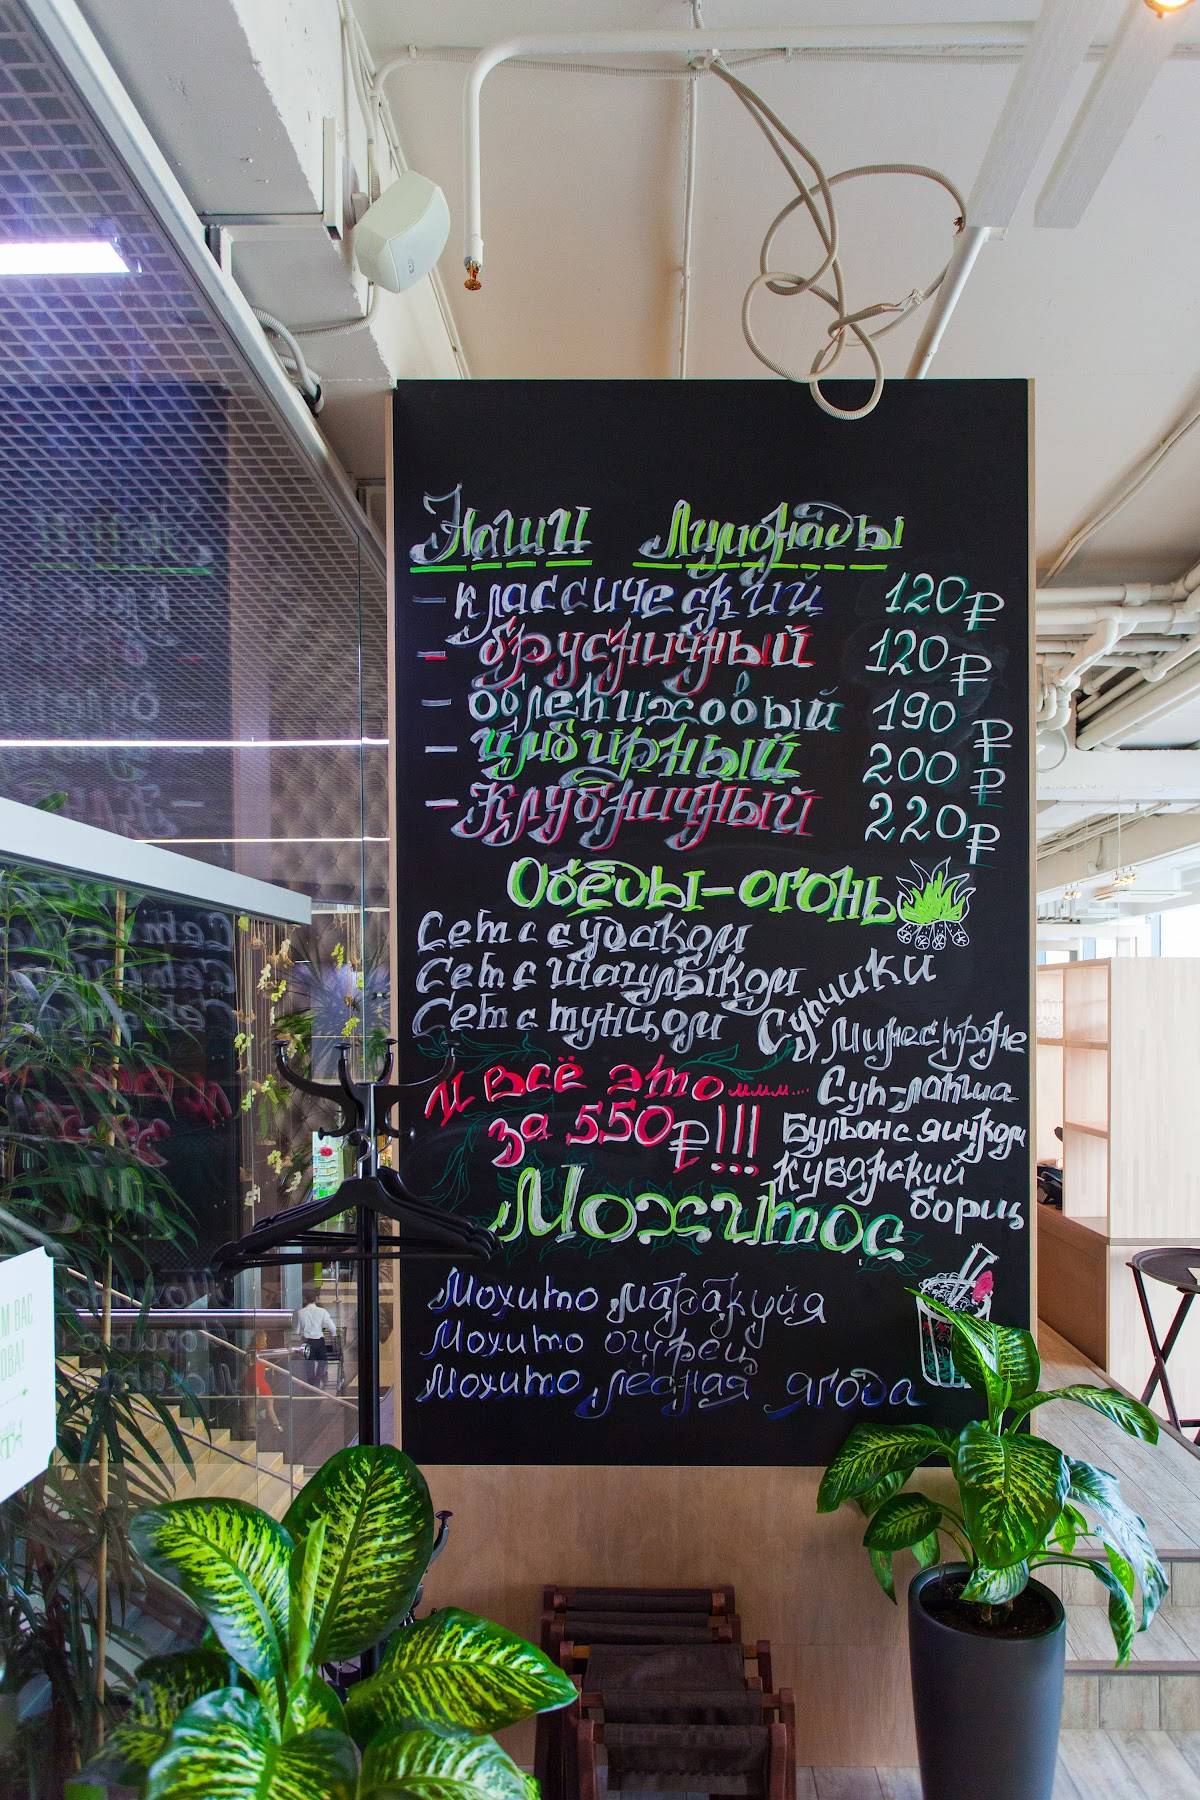 Наши Лимонады
- классический 120₽
- брусничный 120₽
- облепиховый 190₽
- имбирный 200₽
- Клубничный 220₽
Обеды-огонь
Сет с судаком
Сет с шашлыком
Сет с тунцом
И всё это ммм...
за 550₽!!!
Супчики
Минестроне
Суп-лапша
Бульон с яичком
Кубанский
борщ
Мохитос
Мохито маракуйя
Мохито огурец
Мохито лесная ягода
М ВАС
ОВА!